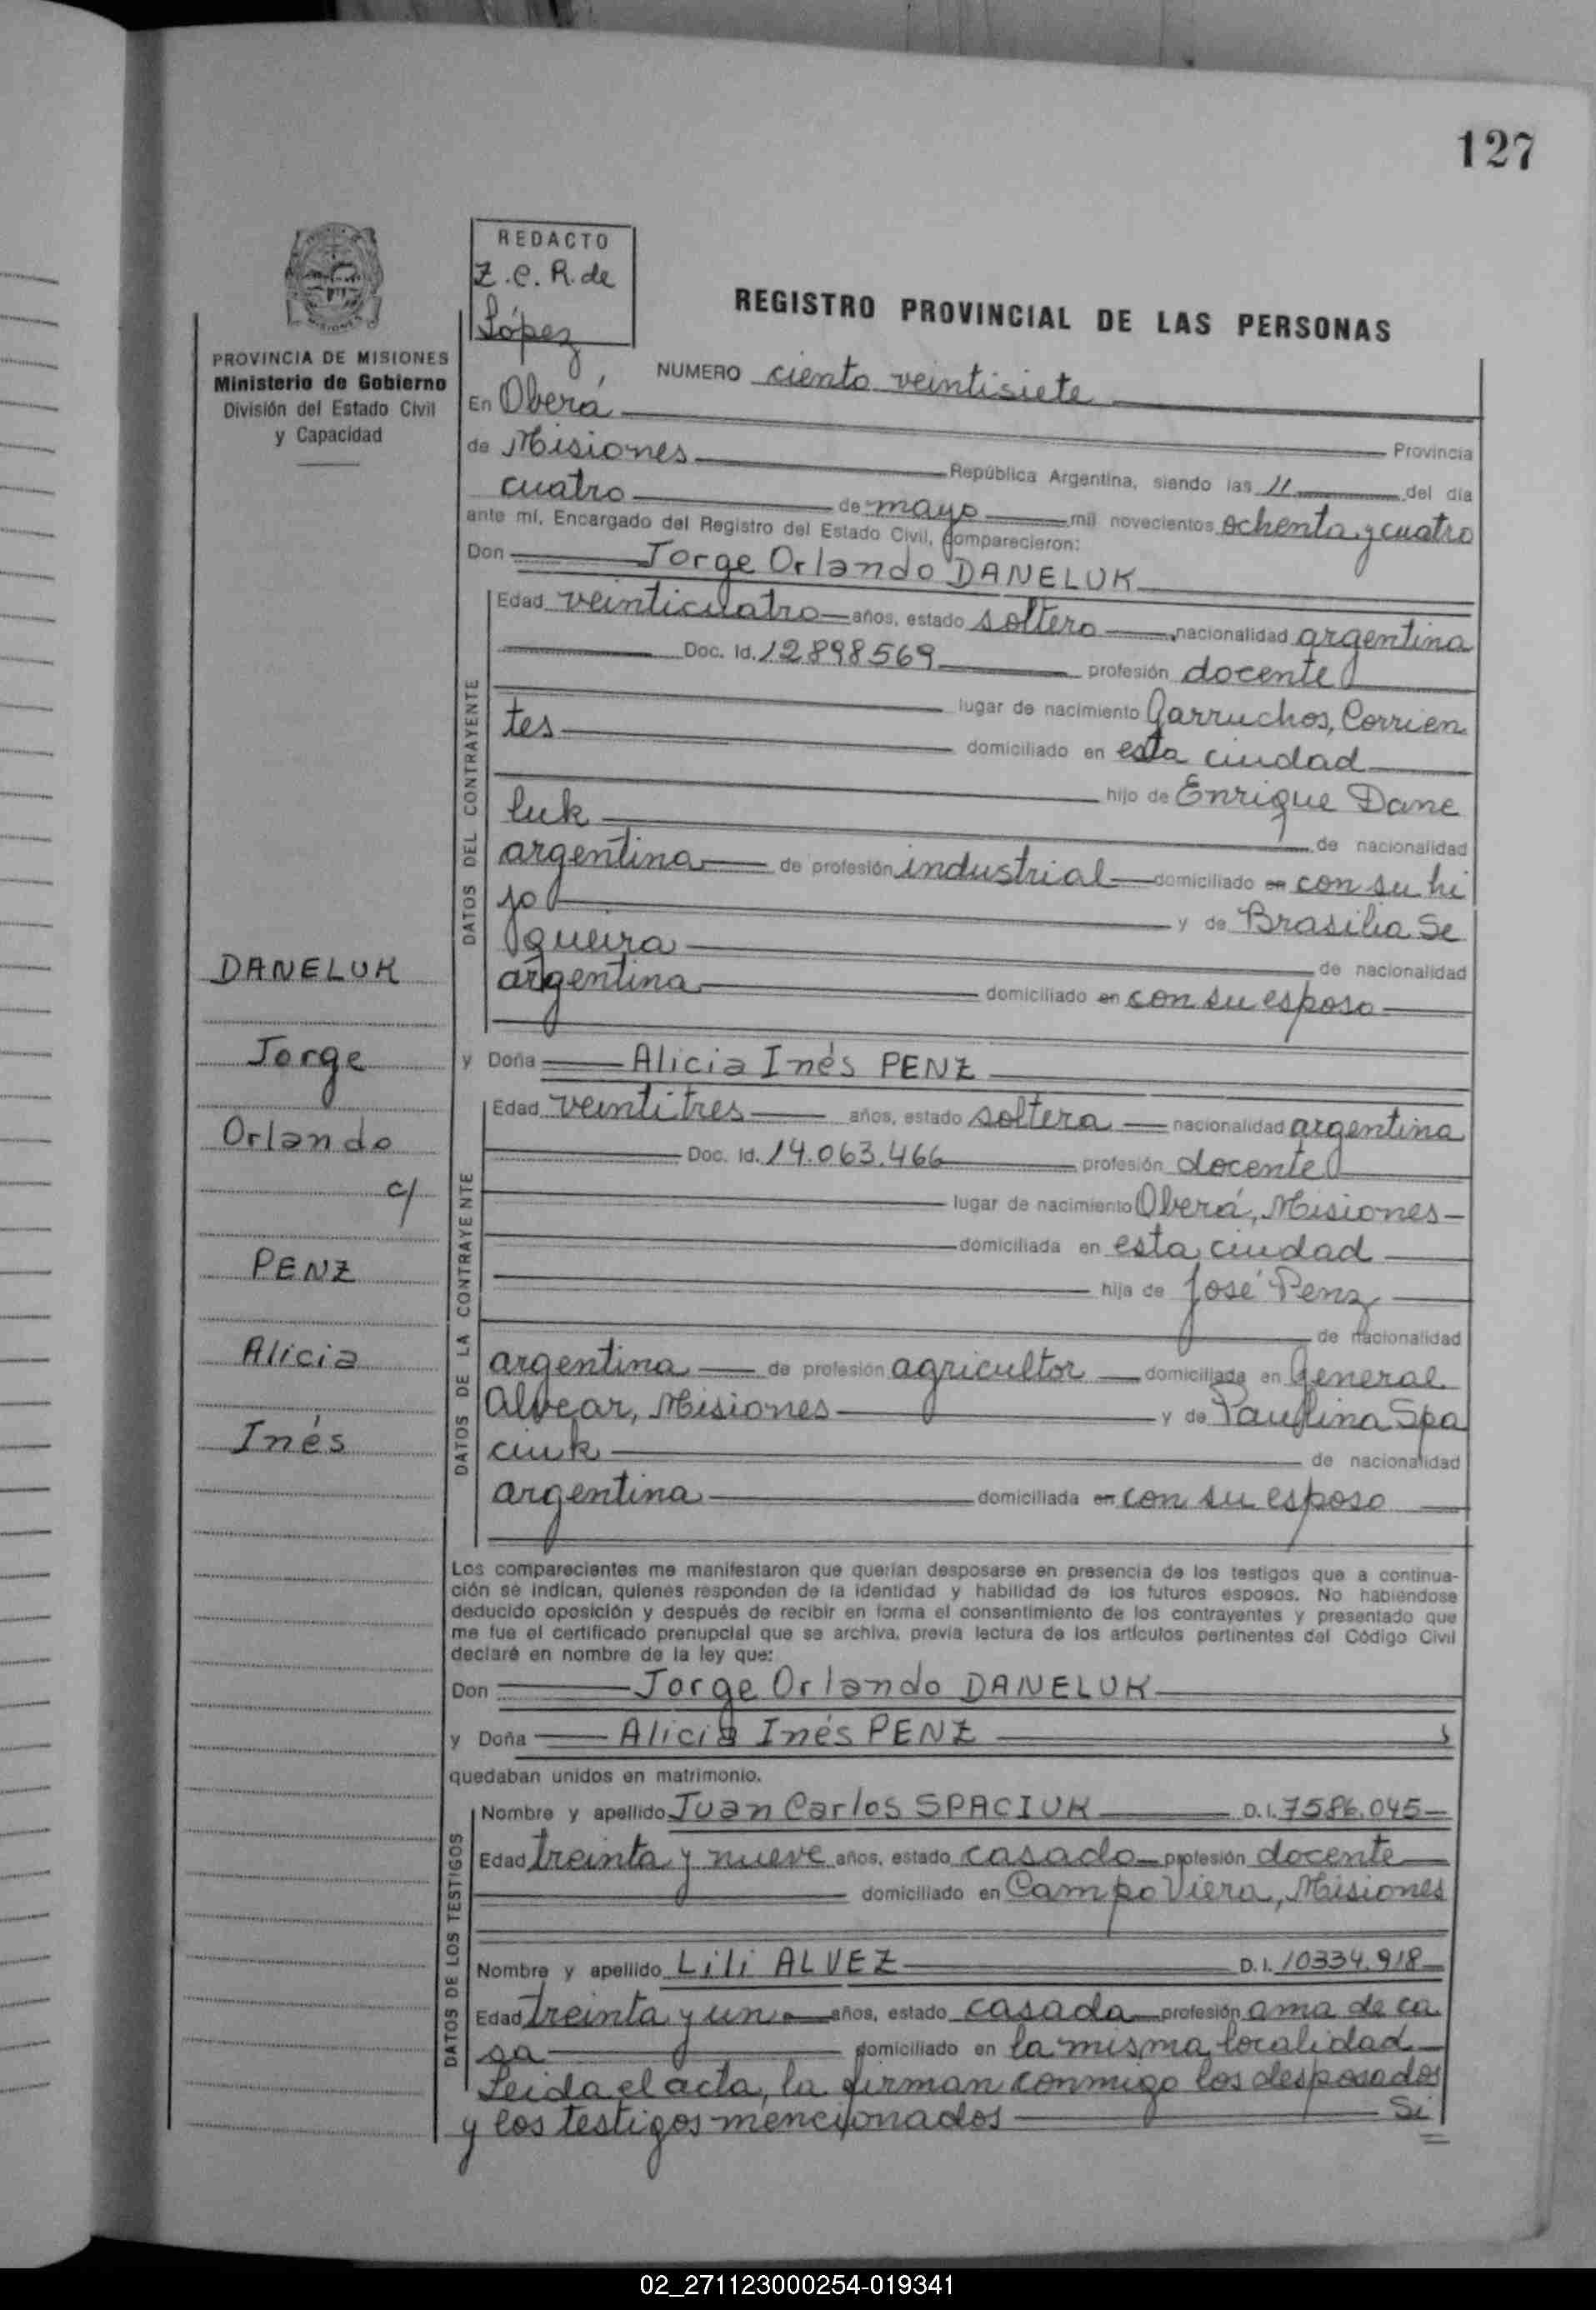 127
REDACTO
Z.C.R. de
López
REGISTRO PROVINCIAL DE LAS PERSONAS
PROVINCIA DE MISIONES
Ministerio de Gobierno
División del Estado Civil
y Capacidad
MISIONES
NUMERO ciento veintisiete
En Oberá Provincia
de Misiones República Argentina, siendo las 11 del día
cuatro de mayo mil novecientos ochenta y cuatro
ante mí, Encargado del Registro del Estado Civil, comparecieron:
Don Jorge Orlando DANELUK
DATOS DEL CONTRAYENTE
Edad veinticuatro años, estado soltero nacionalidad argentina
Doc. Id. 12898569 profesión docente
lugar de nacimiento Garruchos, Corrien
tes domiciliado en esta ciudad
hijo de Enrique Dane
luk de nacionalidad
argentina de profesión industrial domiciliado en con su hi
jo y de Brasilia Se
queira de nacionalidad
argentina domiciliado en con su esposo
DANELUK
Jorge
Orlando
c/
PENZ
Alicia
Inés
y Doña Alicia Inés PENZ
DATOS DE LA CONTRAYENTE
Edad veintitres años, estado soltera nacionalidad argentina
Doc. Id. 14.063.466 profesión docente
lugar de nacimiento Oberá, Misiones
domiciliada en esta ciudad
hija de José Penz
de nacionalidad
argentina de profesión agricultor domiciliada en General
Alvear, Misiones y de Paulina Spa
ciuk de nacionalidad
argentina domiciliada en con su esposo
Los comparecientes me manifestaron que querían desposarse en presencia de los testigos que a continua-
ción se indican, quienes responden de la identidad y habilidad de los futuros esposos. No habiéndose
deducido oposición y después de recibir en forma el consentimiento de los contrayentes y presentado que
me fue el certificado prenupcial que se archiva, previa lectura de los artículos pertinentes del Código Civil
declaré en nombre de la ley que:
Don Jorge Orlando DANELUK
y Doña Alicia Inés PENZ
quedaban unidos en matrimonio.
DATOS DE LOS TESTIGOS
Nombre y apellido Juan Carlos SPACIUK D.I. 7586.045
Edad treinta y nueve años, estado casado profesión docente
domiciliado en Campo Viera, Misiones
Nombre y apellido Lili ALVEZ D.I. 10334.918
Edad treinta y un años, estado casada profesión ama de ca
sa domiciliado en la misma localidad
Leida el acta, la firman conmigo los desposados
y los testigos mencionados Si
02_271123000254-019341